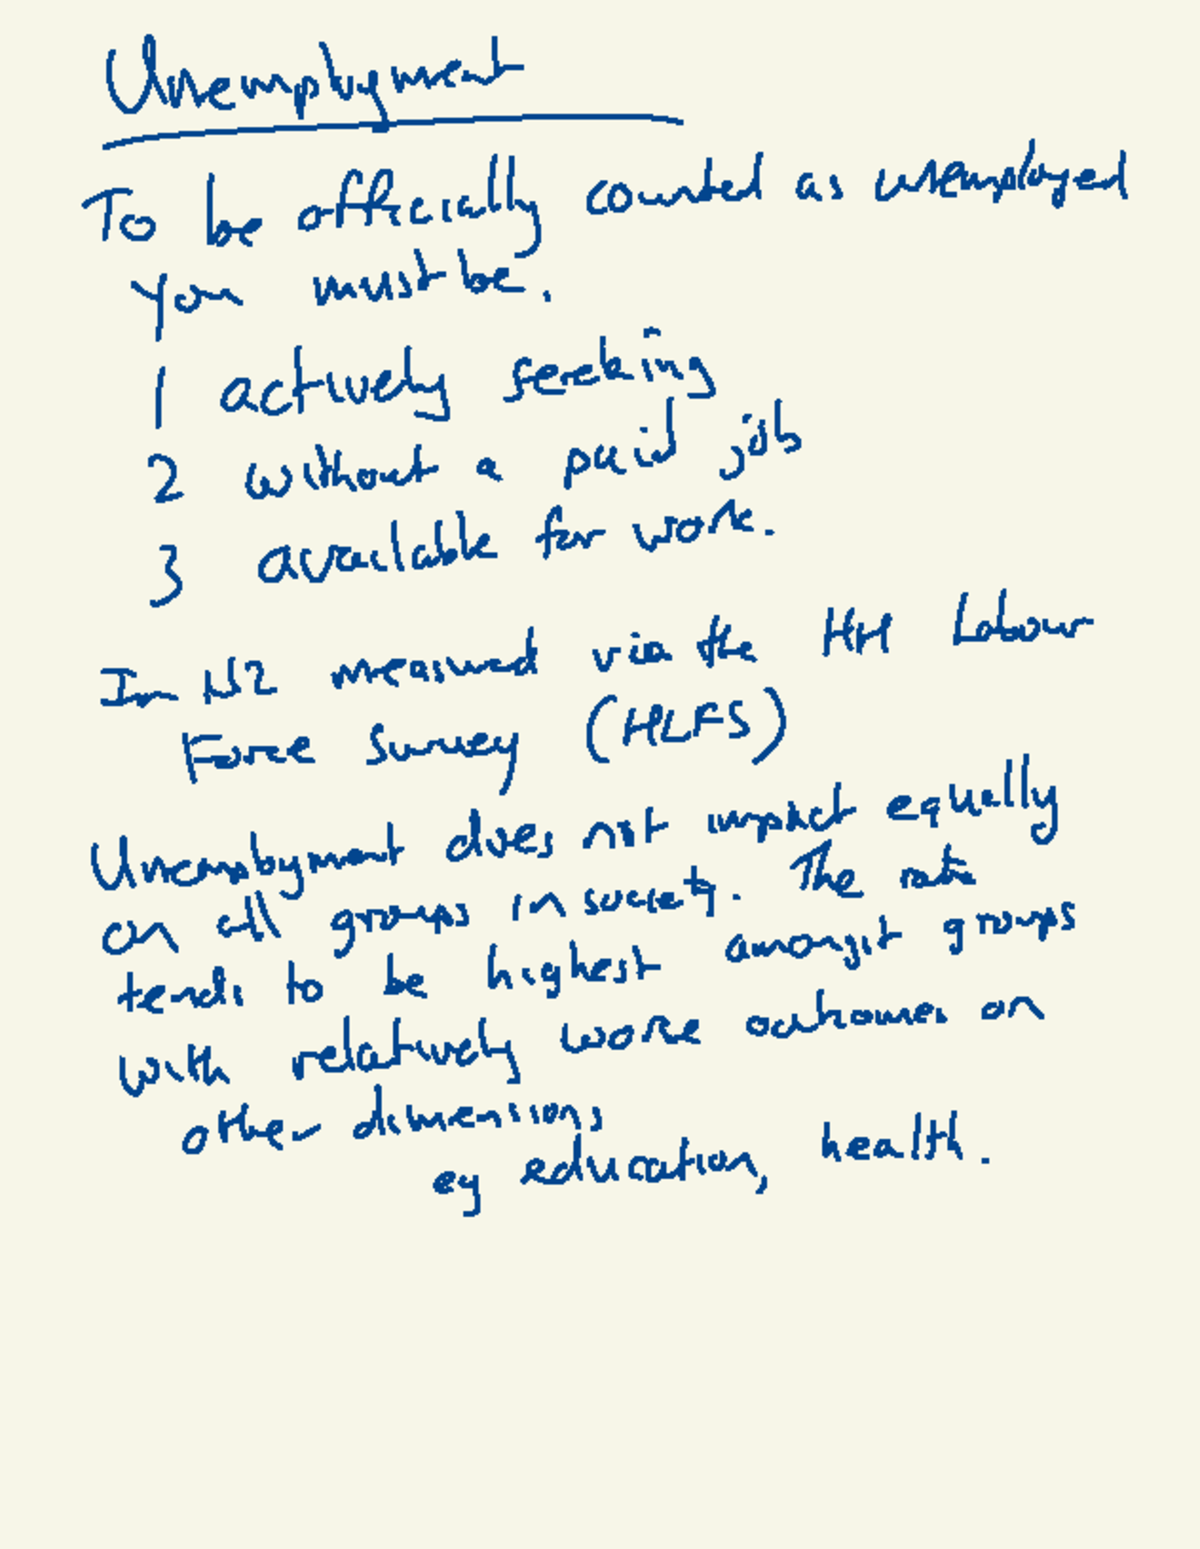 Unemployment
To be officially counted as unemployed
you must be.
1 actively seeking
2 without a paid job
3 available for work.
In NZ measured via the HH Labour
Force Survey (HLFS)
Unemployment does not impact equally
on all groups in society. The rate
tends to be highest amongst groups
with relatively worse outcomes on
other dimensions
eg education, health.